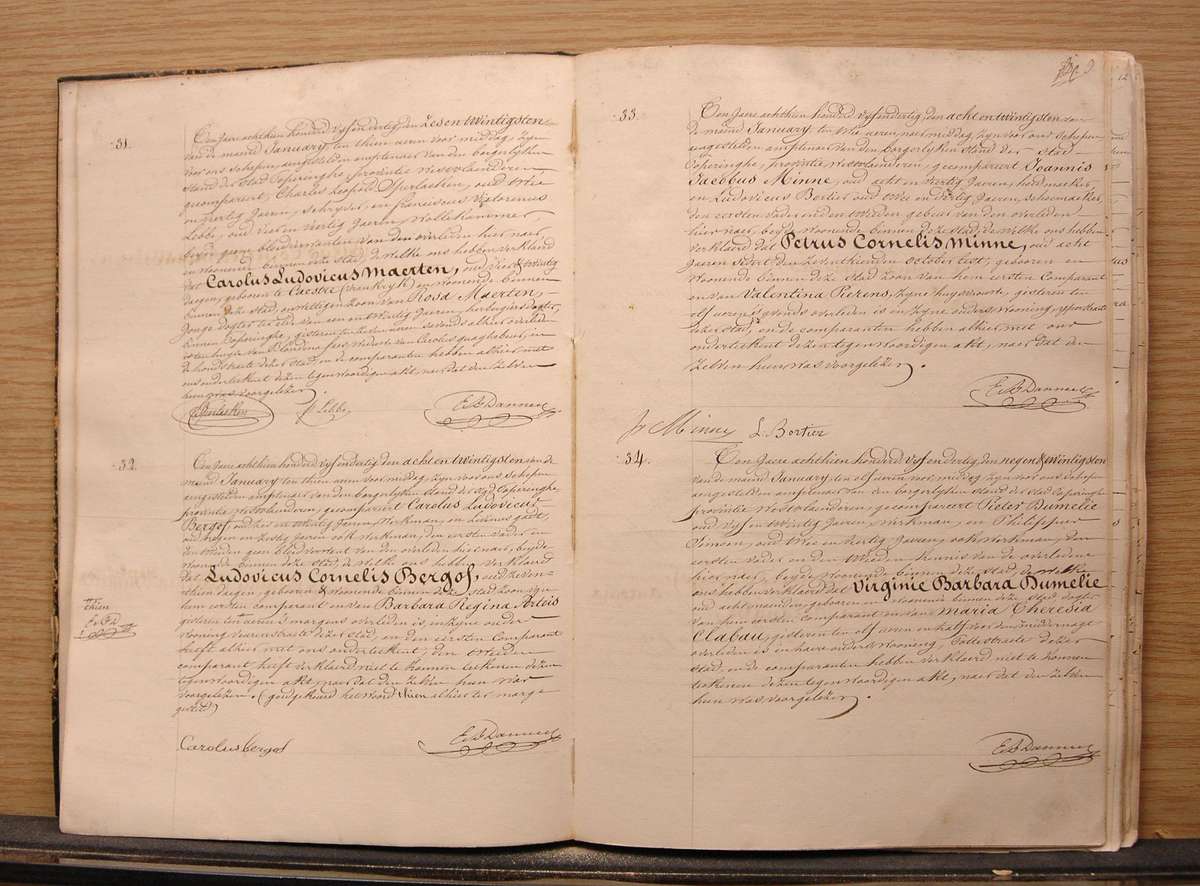 31.
Ten Jaere achthien honderd vyf en dertig, den zes en twintigsten
van de maend January ten thien ueren voor middag, zyn
voor ons schepen aengestelden amptenaer van den borgerlyken
stand der stad Poperinghe provintie Westvlaenderen
gecompareert, Charles Leopold oud twee
en veertig Jaeren, schryver, en franciscus Victorinus
Lebbe, oud vier en veertig Jaeren,
beyde geene bloedverwanten van den overleden hier naer
en woonende binnen deze stad, de welke ons hebben verklaerd
dat Carolus Ludovicus Maerten, oud vier & twintig
dagen, geboren te Caestre (Vrankryk) en woonende binnen
binnen deze stad, onwettigen zoon van Rosa Maerten,
Jonge dogter, ten elf van een en twintig Jaeren, herbergiers dogter,
binnen Poperinghe, gisteren ten zeven ueren 's avonds alhier overleden
ten huyze van Blondina weduwe van Carolus quaghebeur, in
de hondstraete dezer stad, en de comparanten hebben alhier met
ons onderteekent dezen tegenwoordigen akt, naer dat den zelven
hun was voorgelezen.
Lebbe E. B. Danneel
32.
Ten Jaere achthien honderd vyf en dertig den acht en twintigsten van de
maend January ten thien ueren voor middag, zyn voor ons schepen
aengestelden amptenaer van den borgerlyken stand der stad Poperinghe
provintie Westvlaenderen, gecompareert Carolus Ludovicus
Bergos, oud zes en veertig Jaeren, Werkman, en Livinus
oud negen en zestig Jaeren ook werkman, den eersten vader en
den tweeden geen bloedverwant van den overleden hier naer, beyde
woonende binnen deze stad de welke ons hebben verklaerd
dat Ludovicus Cornelis Bergos, oud zeven-
thien dagen, geboren & woonende binnen deze stad zoon van
hem eersten comparant en van Barbara Regina Artois
gisteren ten ueren 's morgens overleden is, in zyne ouders
wooning veurnestraete dezer stad, en den eersten Comparant
heeft alhier met ons onderteekent, den tweeden
comparant heeft verklaerd niet te konnen teekenen dezen
tegenwoordigen akt, naer dat den zelven hun was
voorgelezen. (goedgekeurd het woord thien alhier ter marge
gesteld)
thien
E. B. D
Carolus bergos E. B. Danneel
33.
Ten Jaere achthien honderd vyf en dertig, den acht en twintigsten van
de maend January ten twee ueren naer middag, zyn voor ons schepen
aengestelden amptenaer van den borgerlyken stand der stad
Poperinghe, provintie Westvlaenderen, gecompareert Joannis
Jacobus Minne, oud acht en veertig Jaeren, hoedmaeker,
en Ludovicus Bortier oud twee en dertig Jaeren, schoenmaeker,
den eersten vader en den tweeden gebuer van den overleden
hier naer, beyde woonende binnen deze stad, de welke ons hebben
verklaerd dat Petrus Cornelis Minne, oud acht
Jaeren sedert den zeventhienden october lest, geboren en
woonende binnen deze stad zoon van hem eersten Comparant
en van Valentina Pierens, zyne huysvrouwe, gisteren ten
elf ueren 's avonds overleden is en zyne ouders wooning,
dezer stad, en de comparanten hebben alhier met ons
onderteekent dezen tegenwoordigen akt, naer dat den
zelven hun was voorgelezen.
E. B. Danneel
Minne L. Bortier
34.
Ten Jaere achthien honderd vyf en dertig, den negen & twintigsten
van de maend January, ten elf ueren voor middag zyn voor ons schepen
aengestelden amptenaer van den borgerlyken stand der stad Poperinghe
provintie Westvlaenderen, gecompareert Pieter Dumelie
oud vyf en twintig Jaeren, werkman, en Philippus
Simoen, oud twee en dertig Jaeren, ook werkman, den
eersten vader en den tweeden kennis van de overledene
hier naer, beyde woonende binnen deze stad, de welke
ons hebben verklaerd dat Virginie Barbara Dumelie
oud acht maenden, geboren en woonende binnen deze stad dogter
van hem eersten comparant en van Maria Theresia
Clabau, gisteren ten elf ueren en half voor den middernagt
overleden is in haere ouders wooning, Gasthuysstraete dezer
stad, en de comparanten hebben verklaerd niet te konnen
teekenen dezen tegenwoordigen akt, naer dat den zelven
hun was voorgelezen.
E. B. Danneel
12